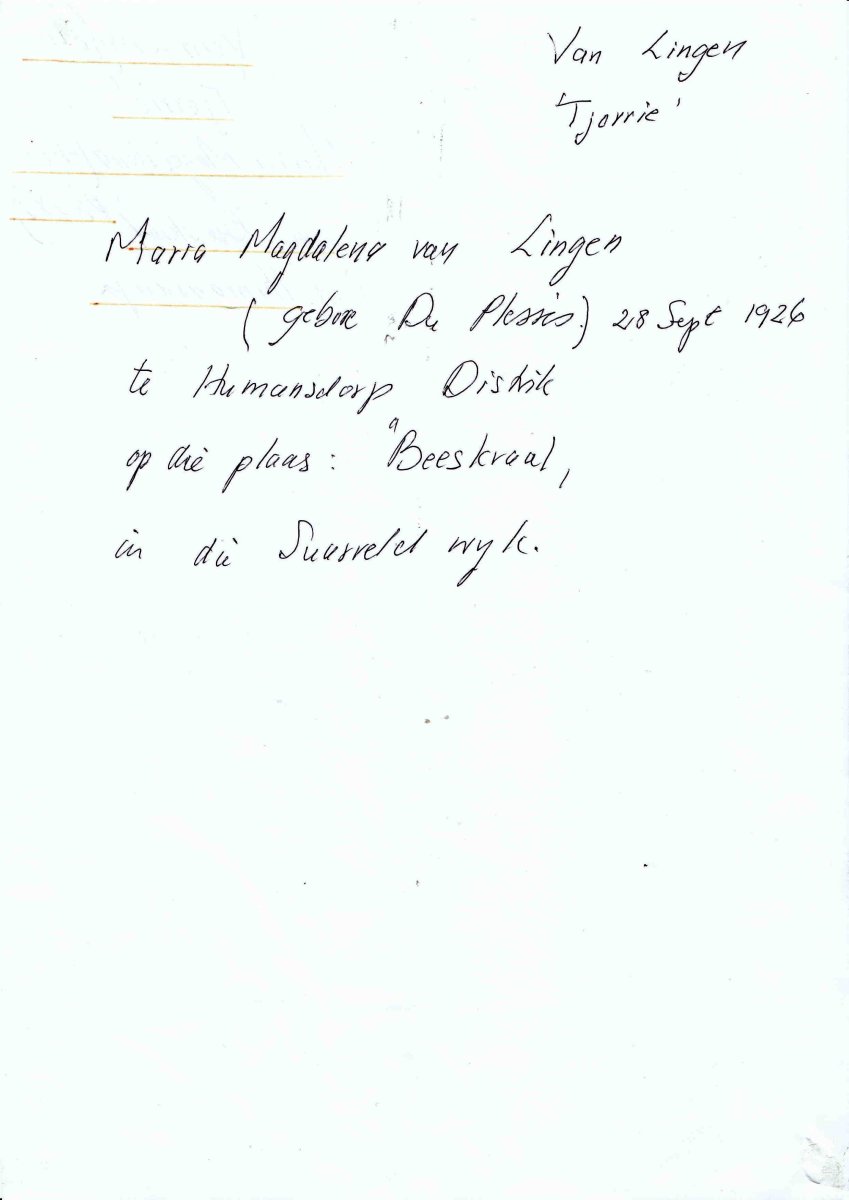 Van Lingen
'Tjorrie'
Maria Magdalena van Lingen
(gebore Du Plessis.) 28 Sept 1926
te Humansdorp Distrik
op die plaas: "Beeskraal,
in die Suurveld wyk.